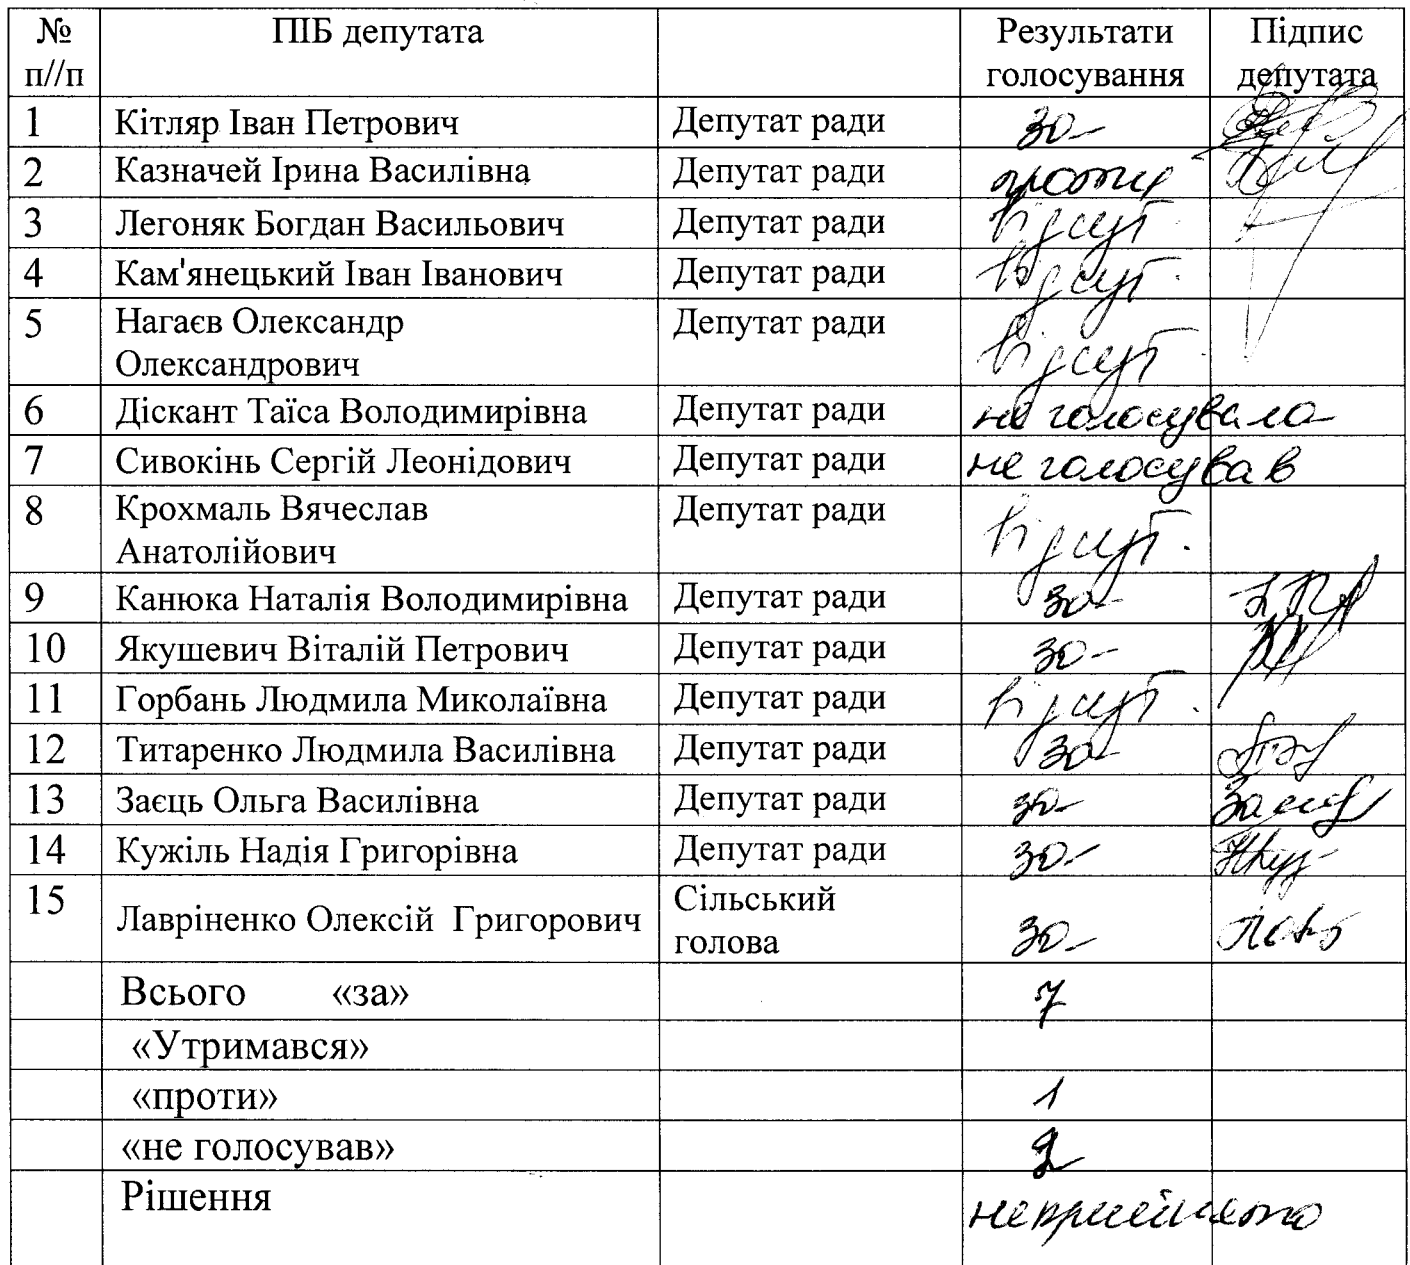 № п//п ПІБ депутата Результати голосування Підпис депутата
1 Кітляр Іван Петрович Депутат ради за
2 Казначей Ірина Василівна Депутат ради проти
3 Легоняк Богдан Васильович Депутат ради відсут.
4 Кам'янецький Іван Іванович Депутат ради відсут.
5 Нагаєв Олександр Депутат ради
Олександрович відсут.
6 Діскант Таїса Володимирівна Депутат ради не голосувала
7 Сивокінь Сергій Леонідович Депутат ради не голосував
8 Крохмаль Вячеслав Депутат ради
Анатолійович відсут.
9 Канюка Наталія Володимирівна Депутат ради за
10 Якушевич Віталій Петрович Депутат ради за
11 Горбань Людмила Миколаївна Депутат ради відсут.
12 Титаренко Людмила Василівна Депутат ради за
13 Заєць Ольга Василівна Депутат ради за
14 Кужіль Надія Григорівна Депутат ради за
15 Лавріненко Олексій Григорович Сільський голова за
Всього «за» 7
«Утримався»
«проти» 1
«не голосував» 2
Рішення неприйнято